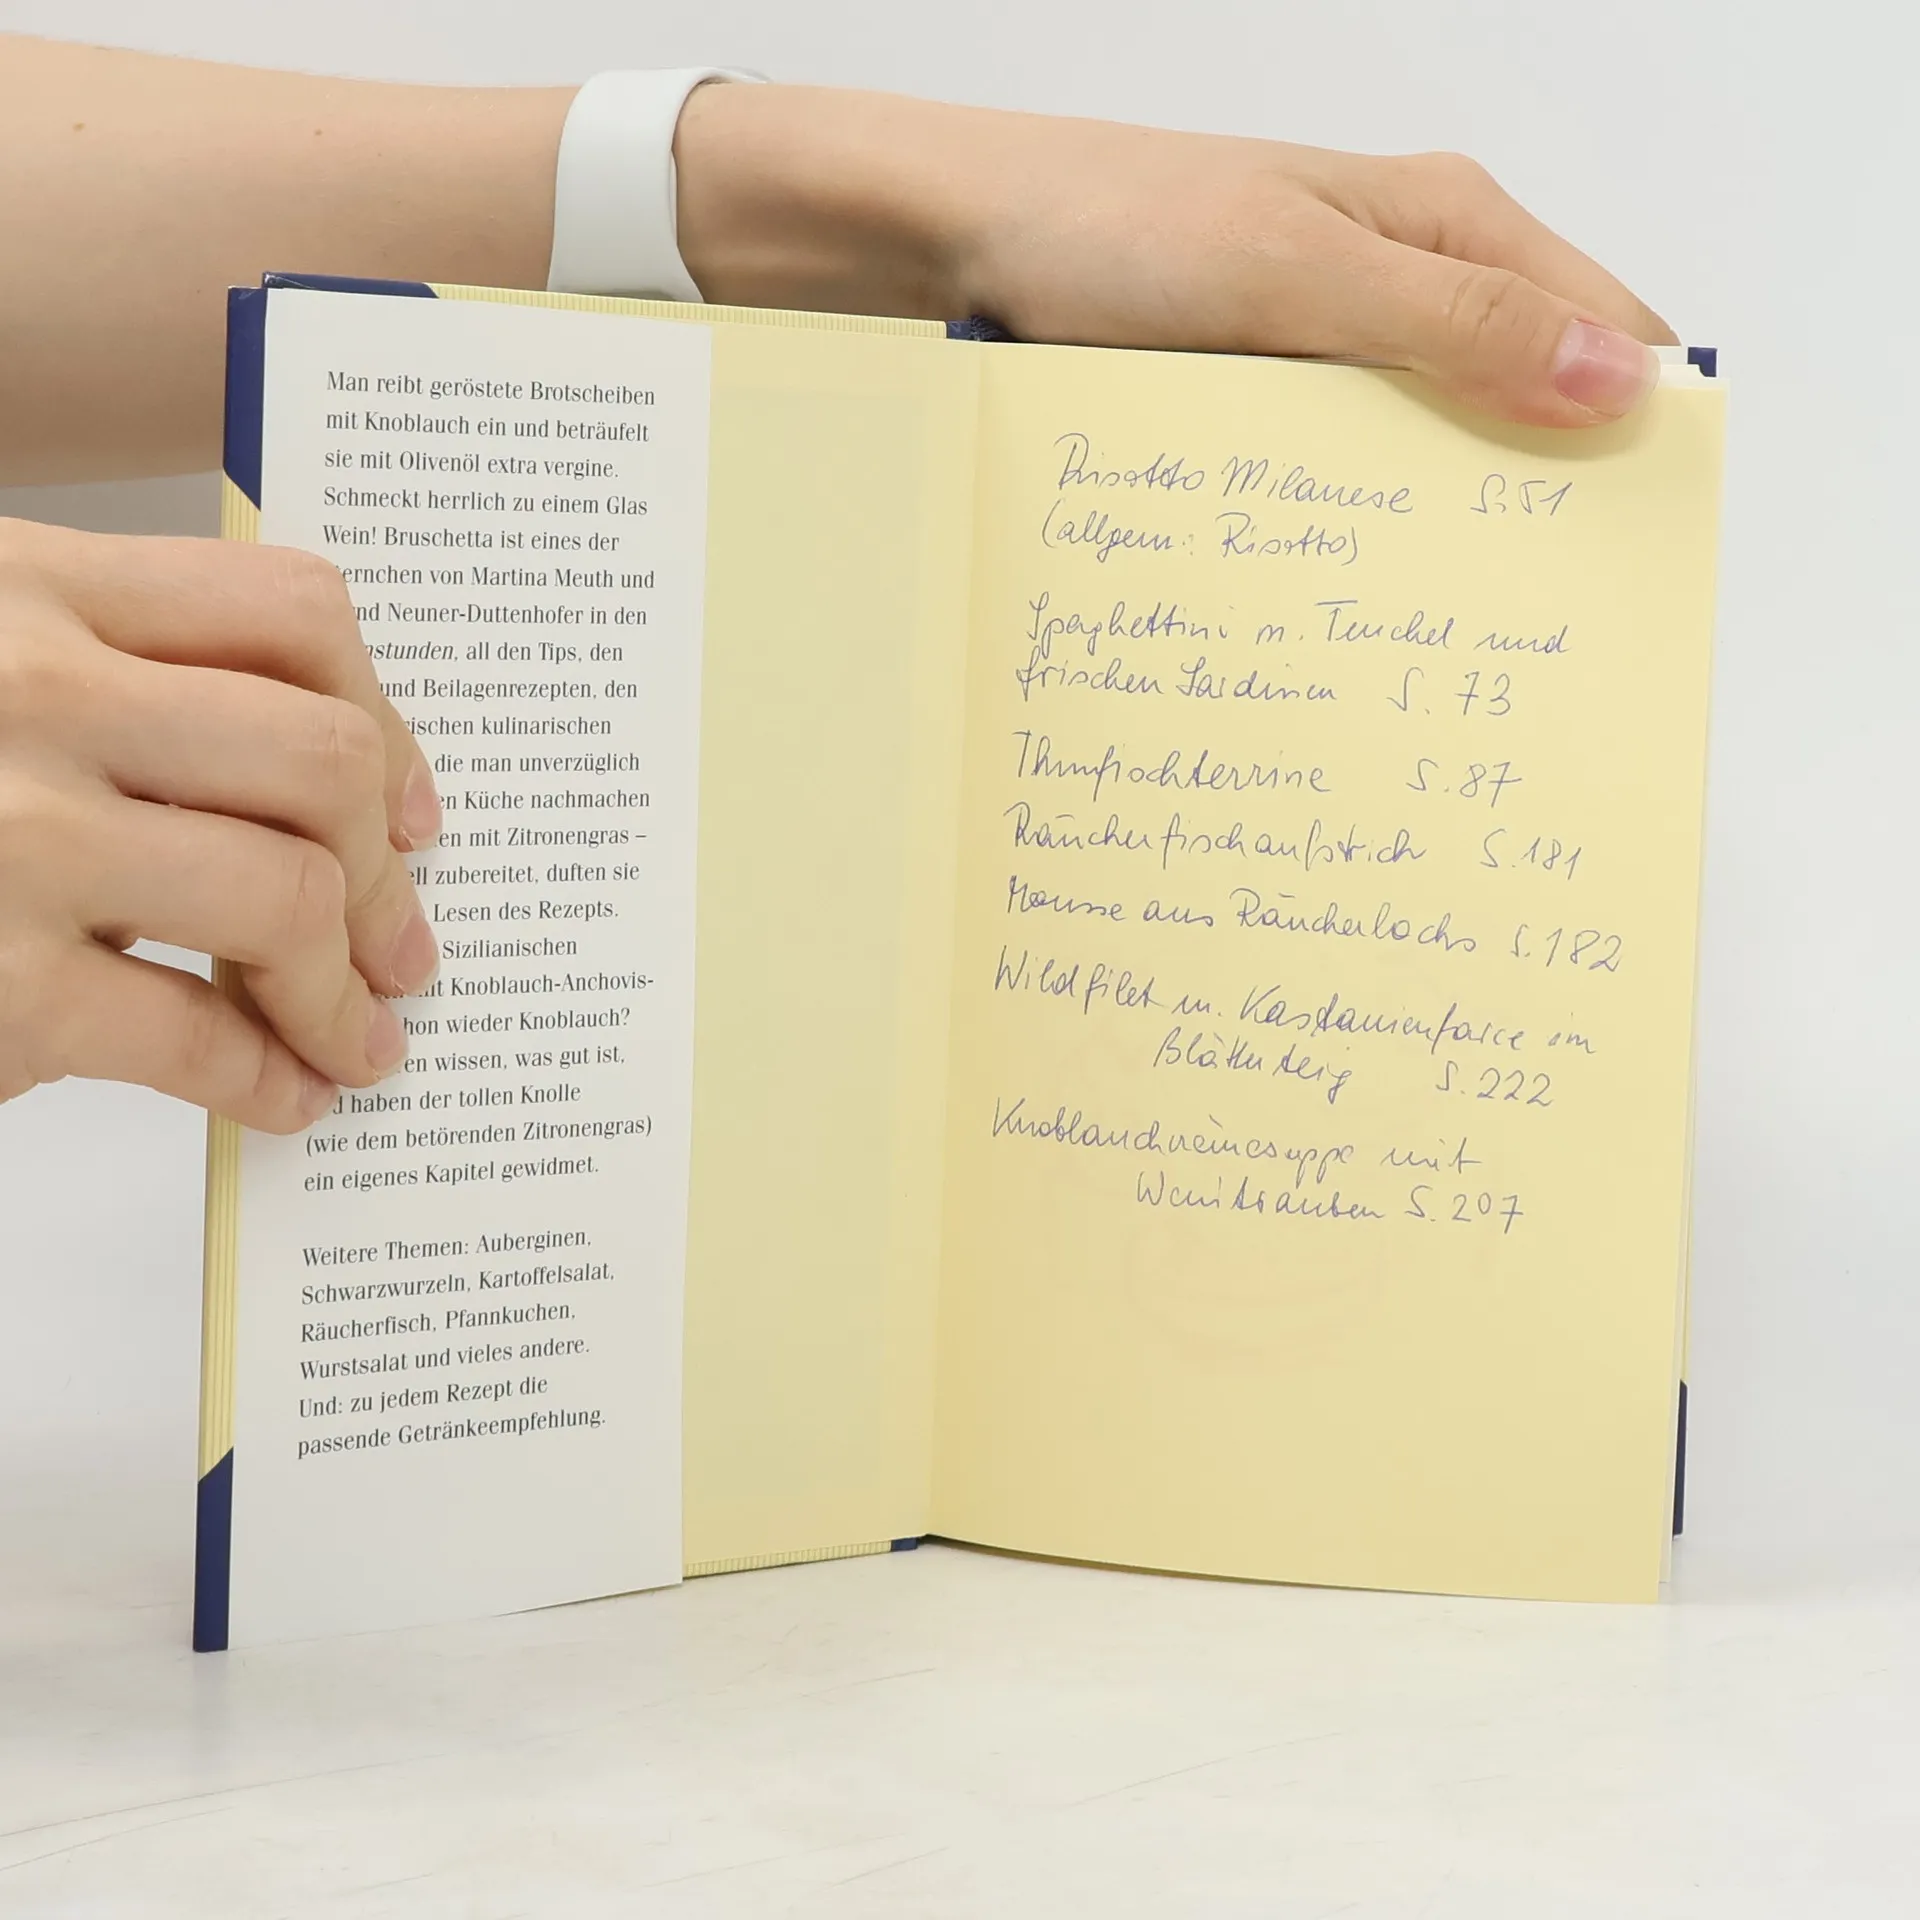 Man reibt geröstete Brotscheiben
mit Knoblauch ein und beträufelt
sie mit Olivenöl extra vergine.
Schmeckt herrlich zu einem Glas
Wein! Bruschetta ist eines der
ernchen von Martina Meuth und
nd Neuner-Duttenhofer in den
nstunden, all den Tips, den
und Beilagenrezepten, den
ischen kulinarischen
die man unverzüglich
en Küche nachmachen
en mit Zitronengras –
ell zubereitet, duften sie
Lesen des Rezepts.
Sizilianischen
it Knoblauch-Anchovis-
hon wieder Knoblauch?
en wissen, was gut ist,
d haben der tollen Knolle
(wie dem betörenden Zitronengras)
ein eigenes Kapitel gewidmet.
Weitere Themen: Auberginen,
Schwarzwurzeln, Kartoffelsalat,
Räucherfisch, Pfannkuchen,
Wurstsalat und vieles andere.
Und: zu jedem Rezept die
passende Getränkeempfehlung.
Risotto Milanese S. 51
(allgem.: Risotto)
Spaghettini m. Fenchel und
frischen Sardinen S. 73
Thunfischterrine S. 87
Räucherfischaufstrich S. 181
Mousse aus Räucherlachs S. 182
Wildfilet m. Kastanienfarce im
Blätterteig S. 222
Knoblauchcrèmesuppe mit
Weintrauben S. 207